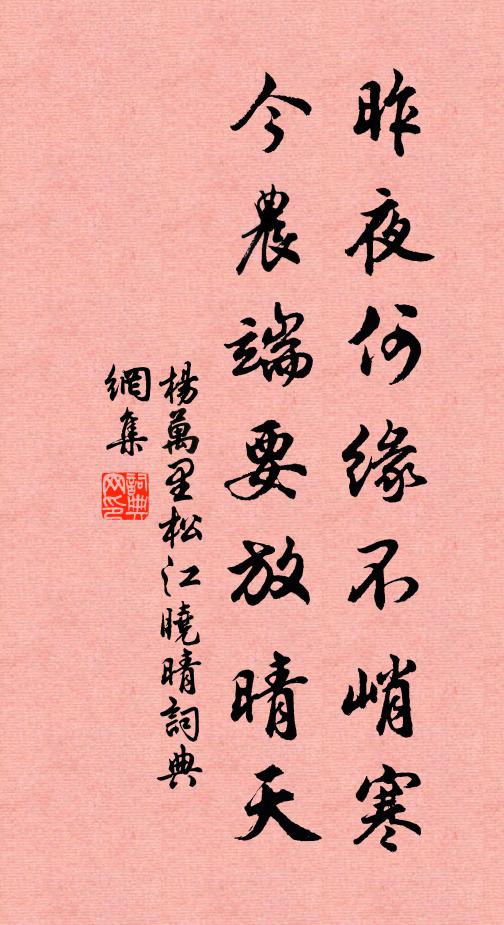 昨夜何緣不峭寒
今農端要放晴天
楊萬里松江曉晴詞典
網集
詞典
网印